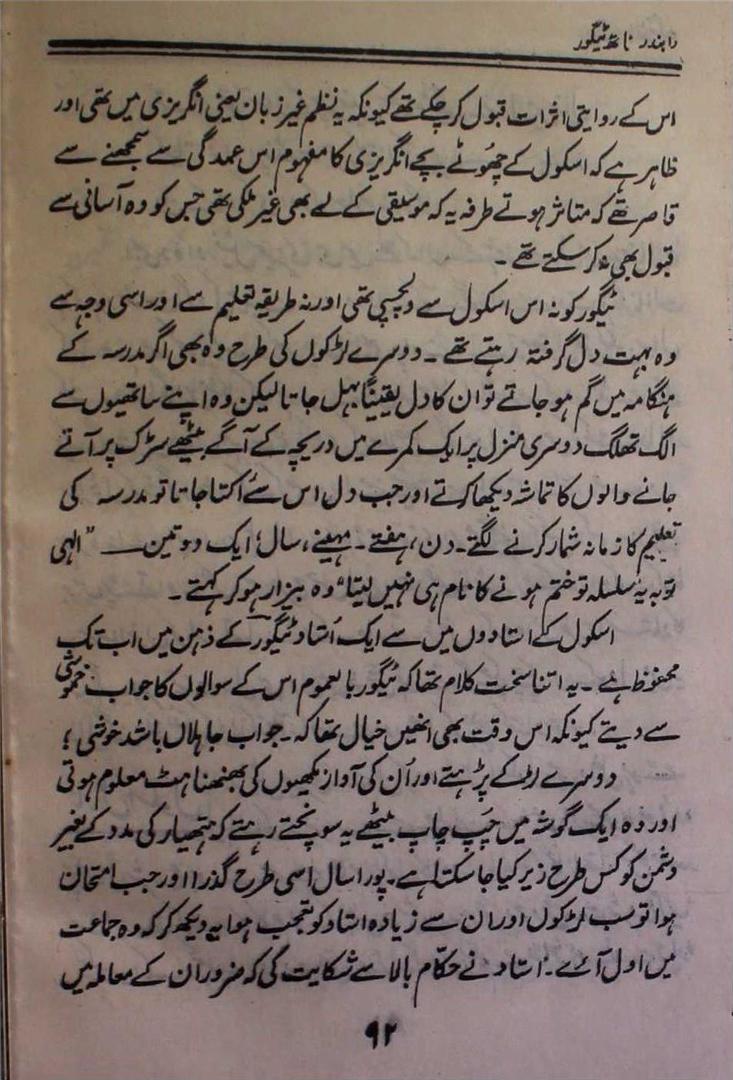 رابندر ناتھ ٹیگور
اس کے روایتی اثرات قبول کر چکے تھے کیونکہ یہ نظم غیر زبان یعنی انگریزی میں تھی اور
ظاہر ہے کہ اسکول کے چھوٹے بچے انگریزی کا مفہوم اس عمدگی سے سمجھنے سے
قاصر تھے کہ متاثر ہوتے طرفہ یہ کہ موسیقی کے لے بھی غیر ملکی تھی جس کو وہ آسانی سے
قبول بھی نہ کر سکتے تھے ۔
ٹیگور کو نہ اس اسکول سے دلچسپی تھی اور نہ طریقہ تعلیم سے اور اسی وجہ سے
وہ بہت دل گرفتہ رہتے تھے ۔ دوسرے لڑکوں کی طرح وہ بھی اگر مدرسہ کے
ہنگامہ میں گم ہو جاتے تو ان کا دل یقیناً بہل جاتا لیکن وہ اپنے ساتھیوں سے
الگ تھلگ دوسری منزل پر ایک کمرے میں دریچہ کے آگے بیٹھے سڑک پر آتے
جانے والوں کا تماشہ دیکھا کرتے اور جب دل اس سے اُکتا جاتا تو مدرسہ کی
تعلیم کا زمانہ شمار کرنے لگتے۔ دن، ہفتے۔ مہینے، سال؛ ایک دو تین ــــ "الہی
توبہ یہ سلسلہ تو ختم ہونے کا نام ہی نہیں لیتا" وہ بیزار ہو کر کہتے ۔
اسکول کے استادوں میں سے ایک اُستاد ٹیگور کے ذہن میں اب تک
محفوظ ہے ۔ یہ اتنا سخت کلام تھا کہ ٹیگور بالعموم اس کے سوالوں کا جواب خموشی
سے دیتے کیونکہ اس وقت بھی انھیں خیال تھا کہ ۔ جواب جاہلاں باشد خوشی ؛
دوسرے لڑکے پڑہتے اور اُن کی آواز مکھیوں کی بھنبھناہٹ معلوم ہوتی
اور وہ ایک گوشہ میں چپ چاپ بیٹھے یہ سوپنچتے رہتے کہ ہتھیار کی مدد کے بغیر
دشمن کو کس طرح زیر کیا جا سکتا ہے ۔ پورا سال اسی طرح گذرا اور جب امتحان
ہوا تو سب لڑکوں اور ان سے زیادہ استاد کو تعجب ہوا یہ دیکھ کر کہ وہ جماعت
میں اول آئے ۔ اُستاد نے حکّام بالا سے شکایت کی کہ ضرور ان کے معاملہ میں
۹۲